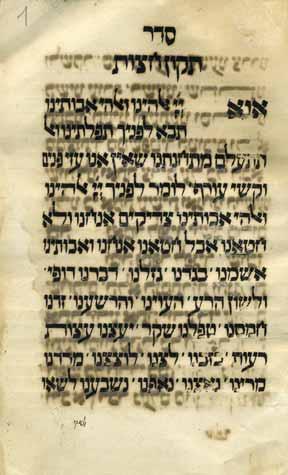 1
סדר
תקון חצות
אנא יי אלהינו ואלהי אבותינו
תבא לפניך תפלתינו ואל
תתעלם מתחנתנו שאין אנו עזי פנים
וקשי עורף לומר לפניך יי אלהינו
ואלהי אבותינו צדיקים אנחנו ולא
חטאנו אבל חטאנו אנחנו ואבותינו
אשמנו בגדנו גזלנו דברנו דופי
ולשון הרע העוינו והרשענו זדנו
חמסנו טפלנו שקר יעצנו עצות
רעות כזבנו לצנו לוצצנו מרדנו
מרינו ניאצנו נאפנו נשבענו לשוא